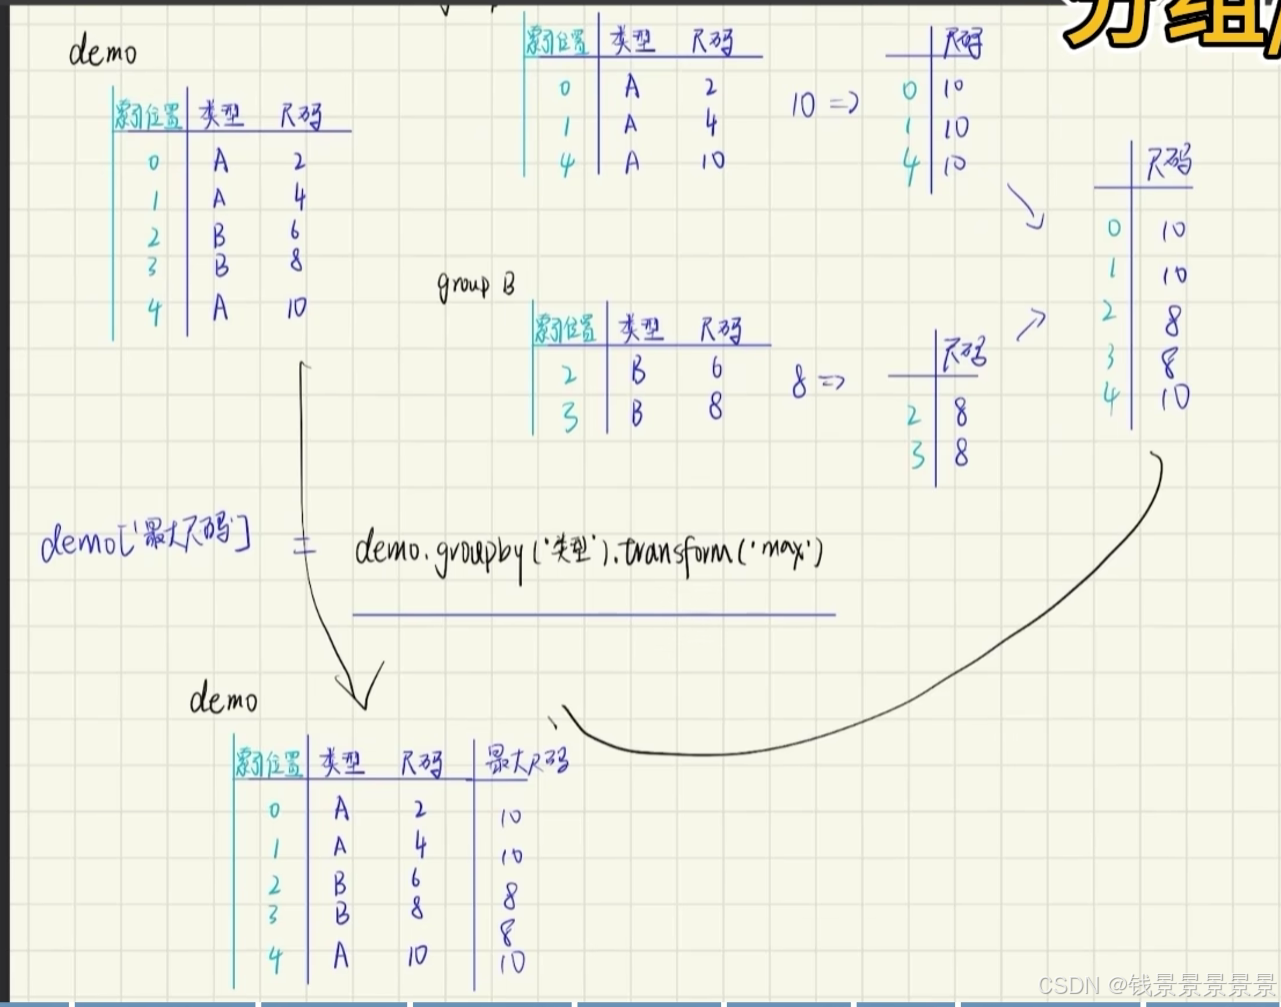 分组
demo
索引位置 类型 尺码
0 A 2
1 A 4
2 B 6
3 B 8
4 A 10
索引位置 类型 尺码
0 A 2
1 A 4
4 A 10
10 =>
尺码
0 10
1 10
4 10
group B
索引位置 类型 尺码
2 B 6
3 B 8
8 =>
尺码
2 8
3 8
尺码
0 10
1 10
2 8
3 8
4 10
demo['最大尺码'] = demo.groupby('类型').transform('max')
demo
索引位置 类型 尺码 最大尺码
0 A 2 10
1 A 4 10
2 B 6 8
3 B 8 8
4 A 10 10
CSDN @钱景景景景景景